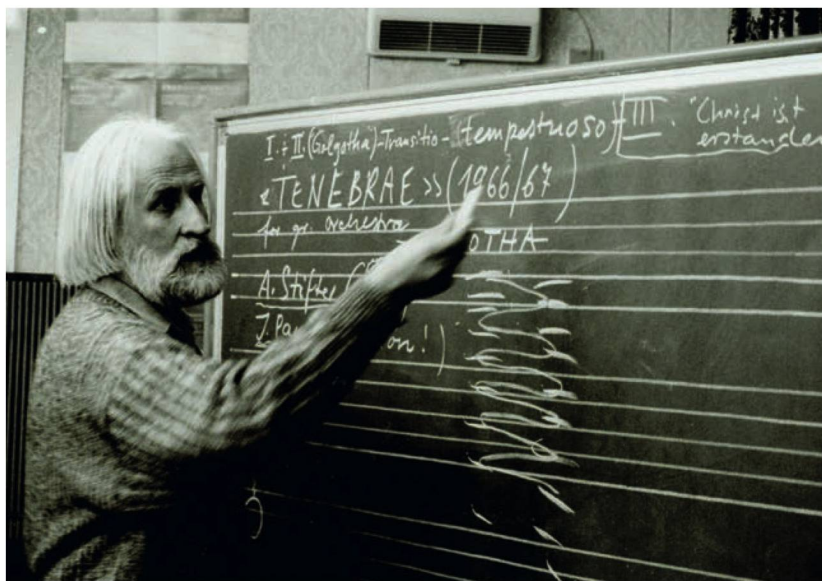 I. + II. (Golgotha)-Transitio-(tempestuoso)
III. "Christ ist
erstanden
«TENEBRAE» (1966/67)
for gr. orchestra
OTHA
A. Stifter
J. on!)